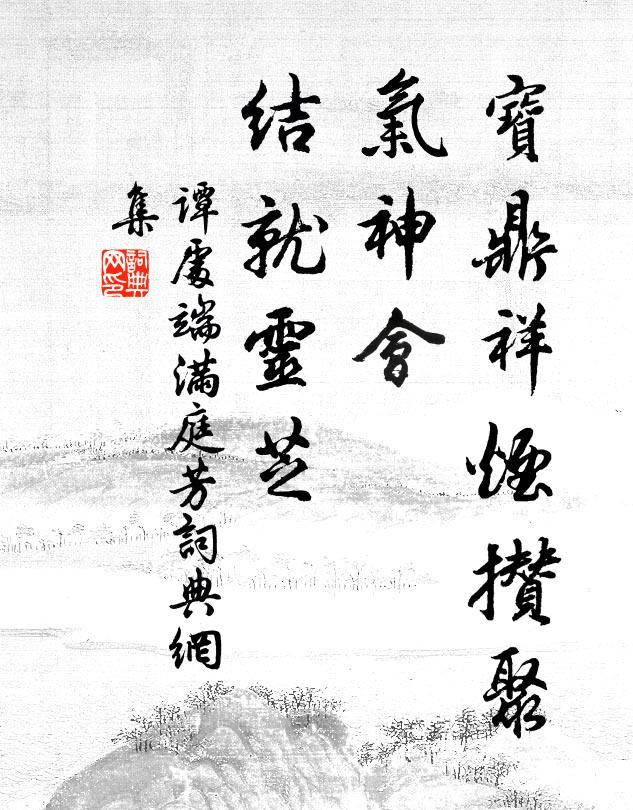 寶鼎祥煙攢聚
氣神會
結就靈芝
譚處端滿庭芳詞典網
集
詞典網印